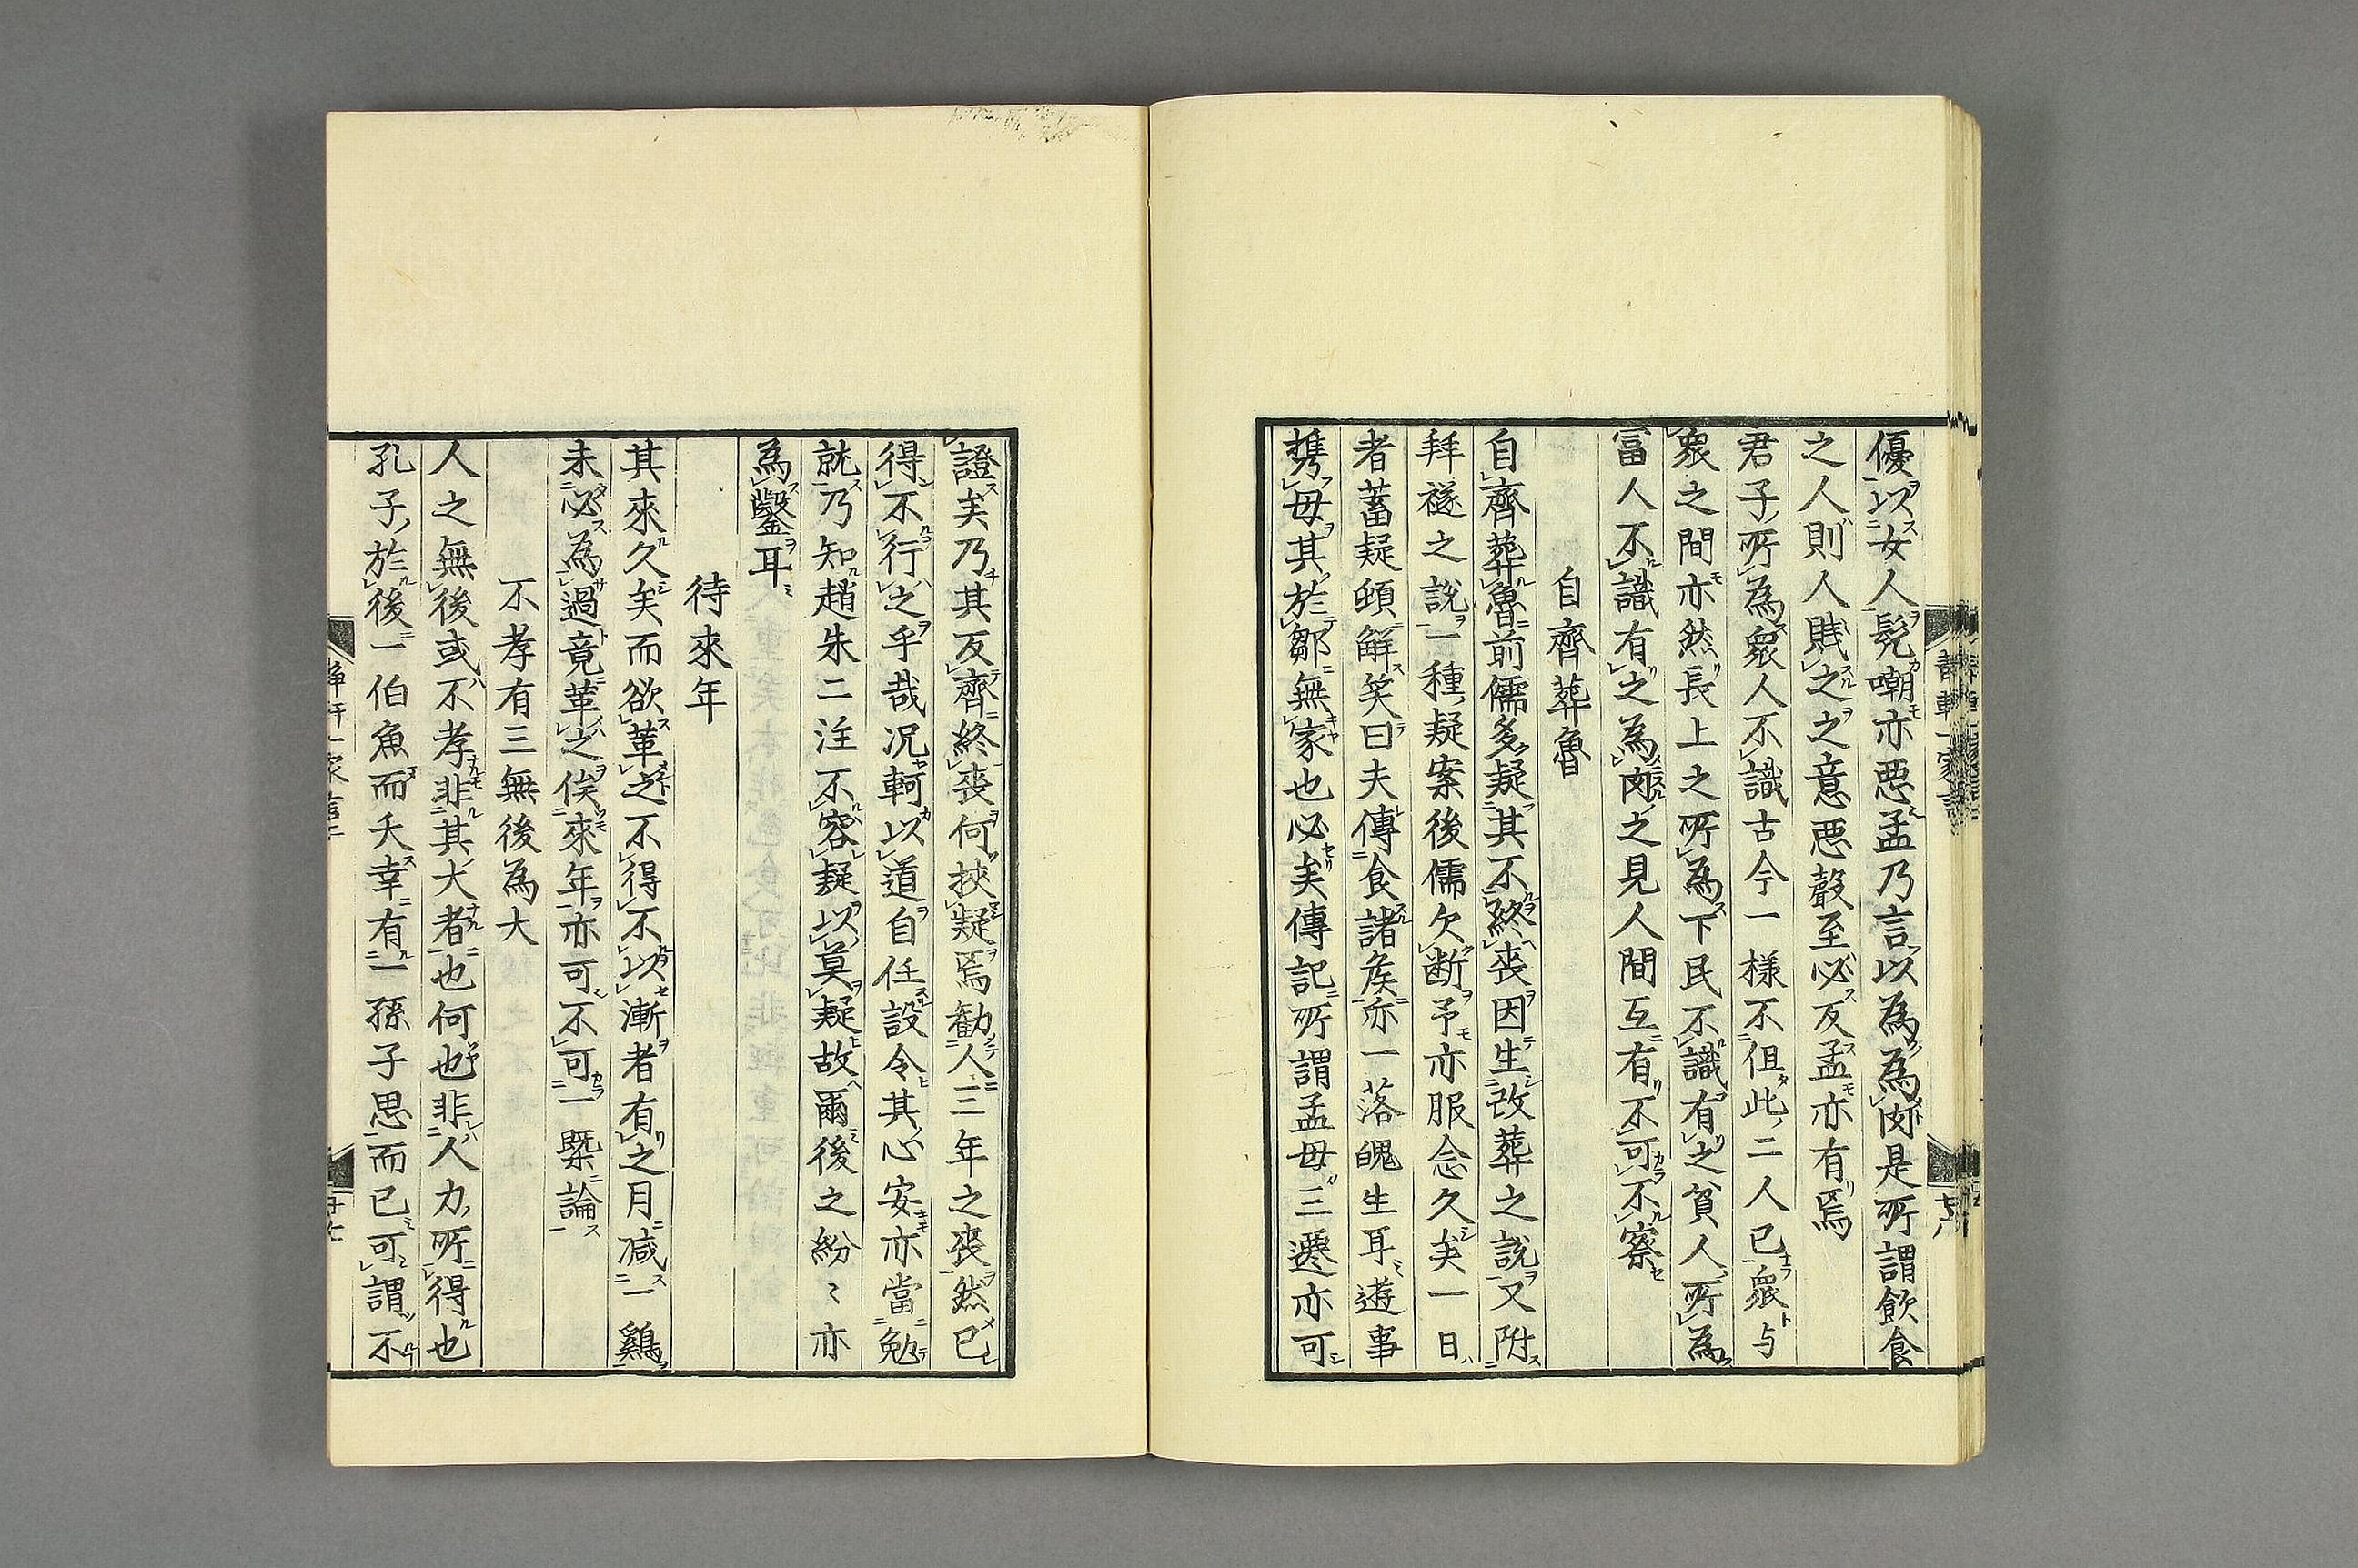 優以女人髡嘲亦惡孟乃言以為為肉是所謂飲食
之人則人賎之之意惡聲至必反孟亦有焉
君子所為衆人不識古今一樣不但此二人已衆与
衆之間亦然長上之所為下民不識有之貧人所為
冨人不識有之為肉之見人間互有不可不察
自齊葬魯
自齊葬魯前儒多疑其不終喪因生改葬之說又附
拜襚之說一種疑案後儒欠断予亦服念久矣一日
者蓄疑頤解笑曰夫傳食諸矦亦一落魄生耳遊事
携母其於鄒無家也必矣傳記所謂孟母三遷亦可
證矣乃其反齊終喪何挾疑焉勸人三年之喪然已
得不行之乎哉况軻以道自任設令其心安亦當勉
就乃知趙朱二注不容疑以莫疑故爾後之紛〻亦
為鑿耳
待來年
其來久矣而欲革之不得不以漸者有之月减一鷄
未必為過竟革之俟來年亦可不可一槩論
不孝有三無後為大
人之無後或不孝非其大者也何也非人力所得也
孔子於後一伯魚而夭幸有一孫子思而已可謂不